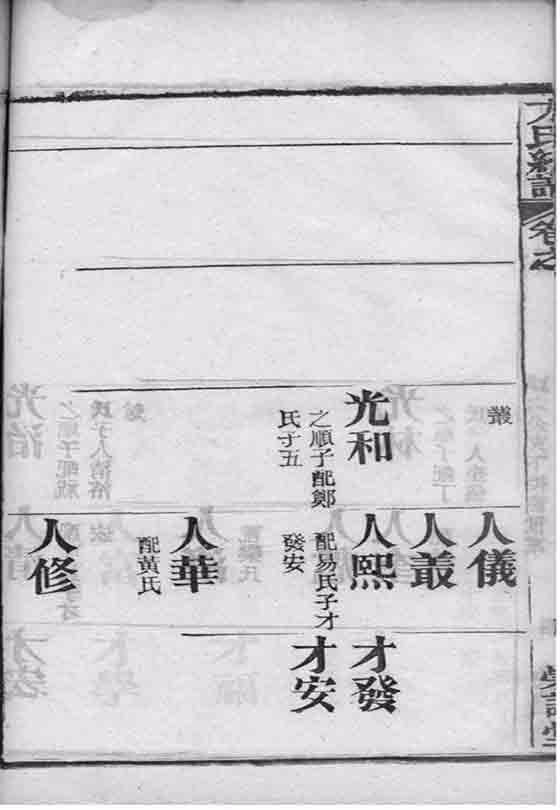 卷之
叢
光和
之順子配鄭
氏子五
人儀
人叢
人熙
配易氏子才
發安
人華
配黃氏
人修
才發
才安